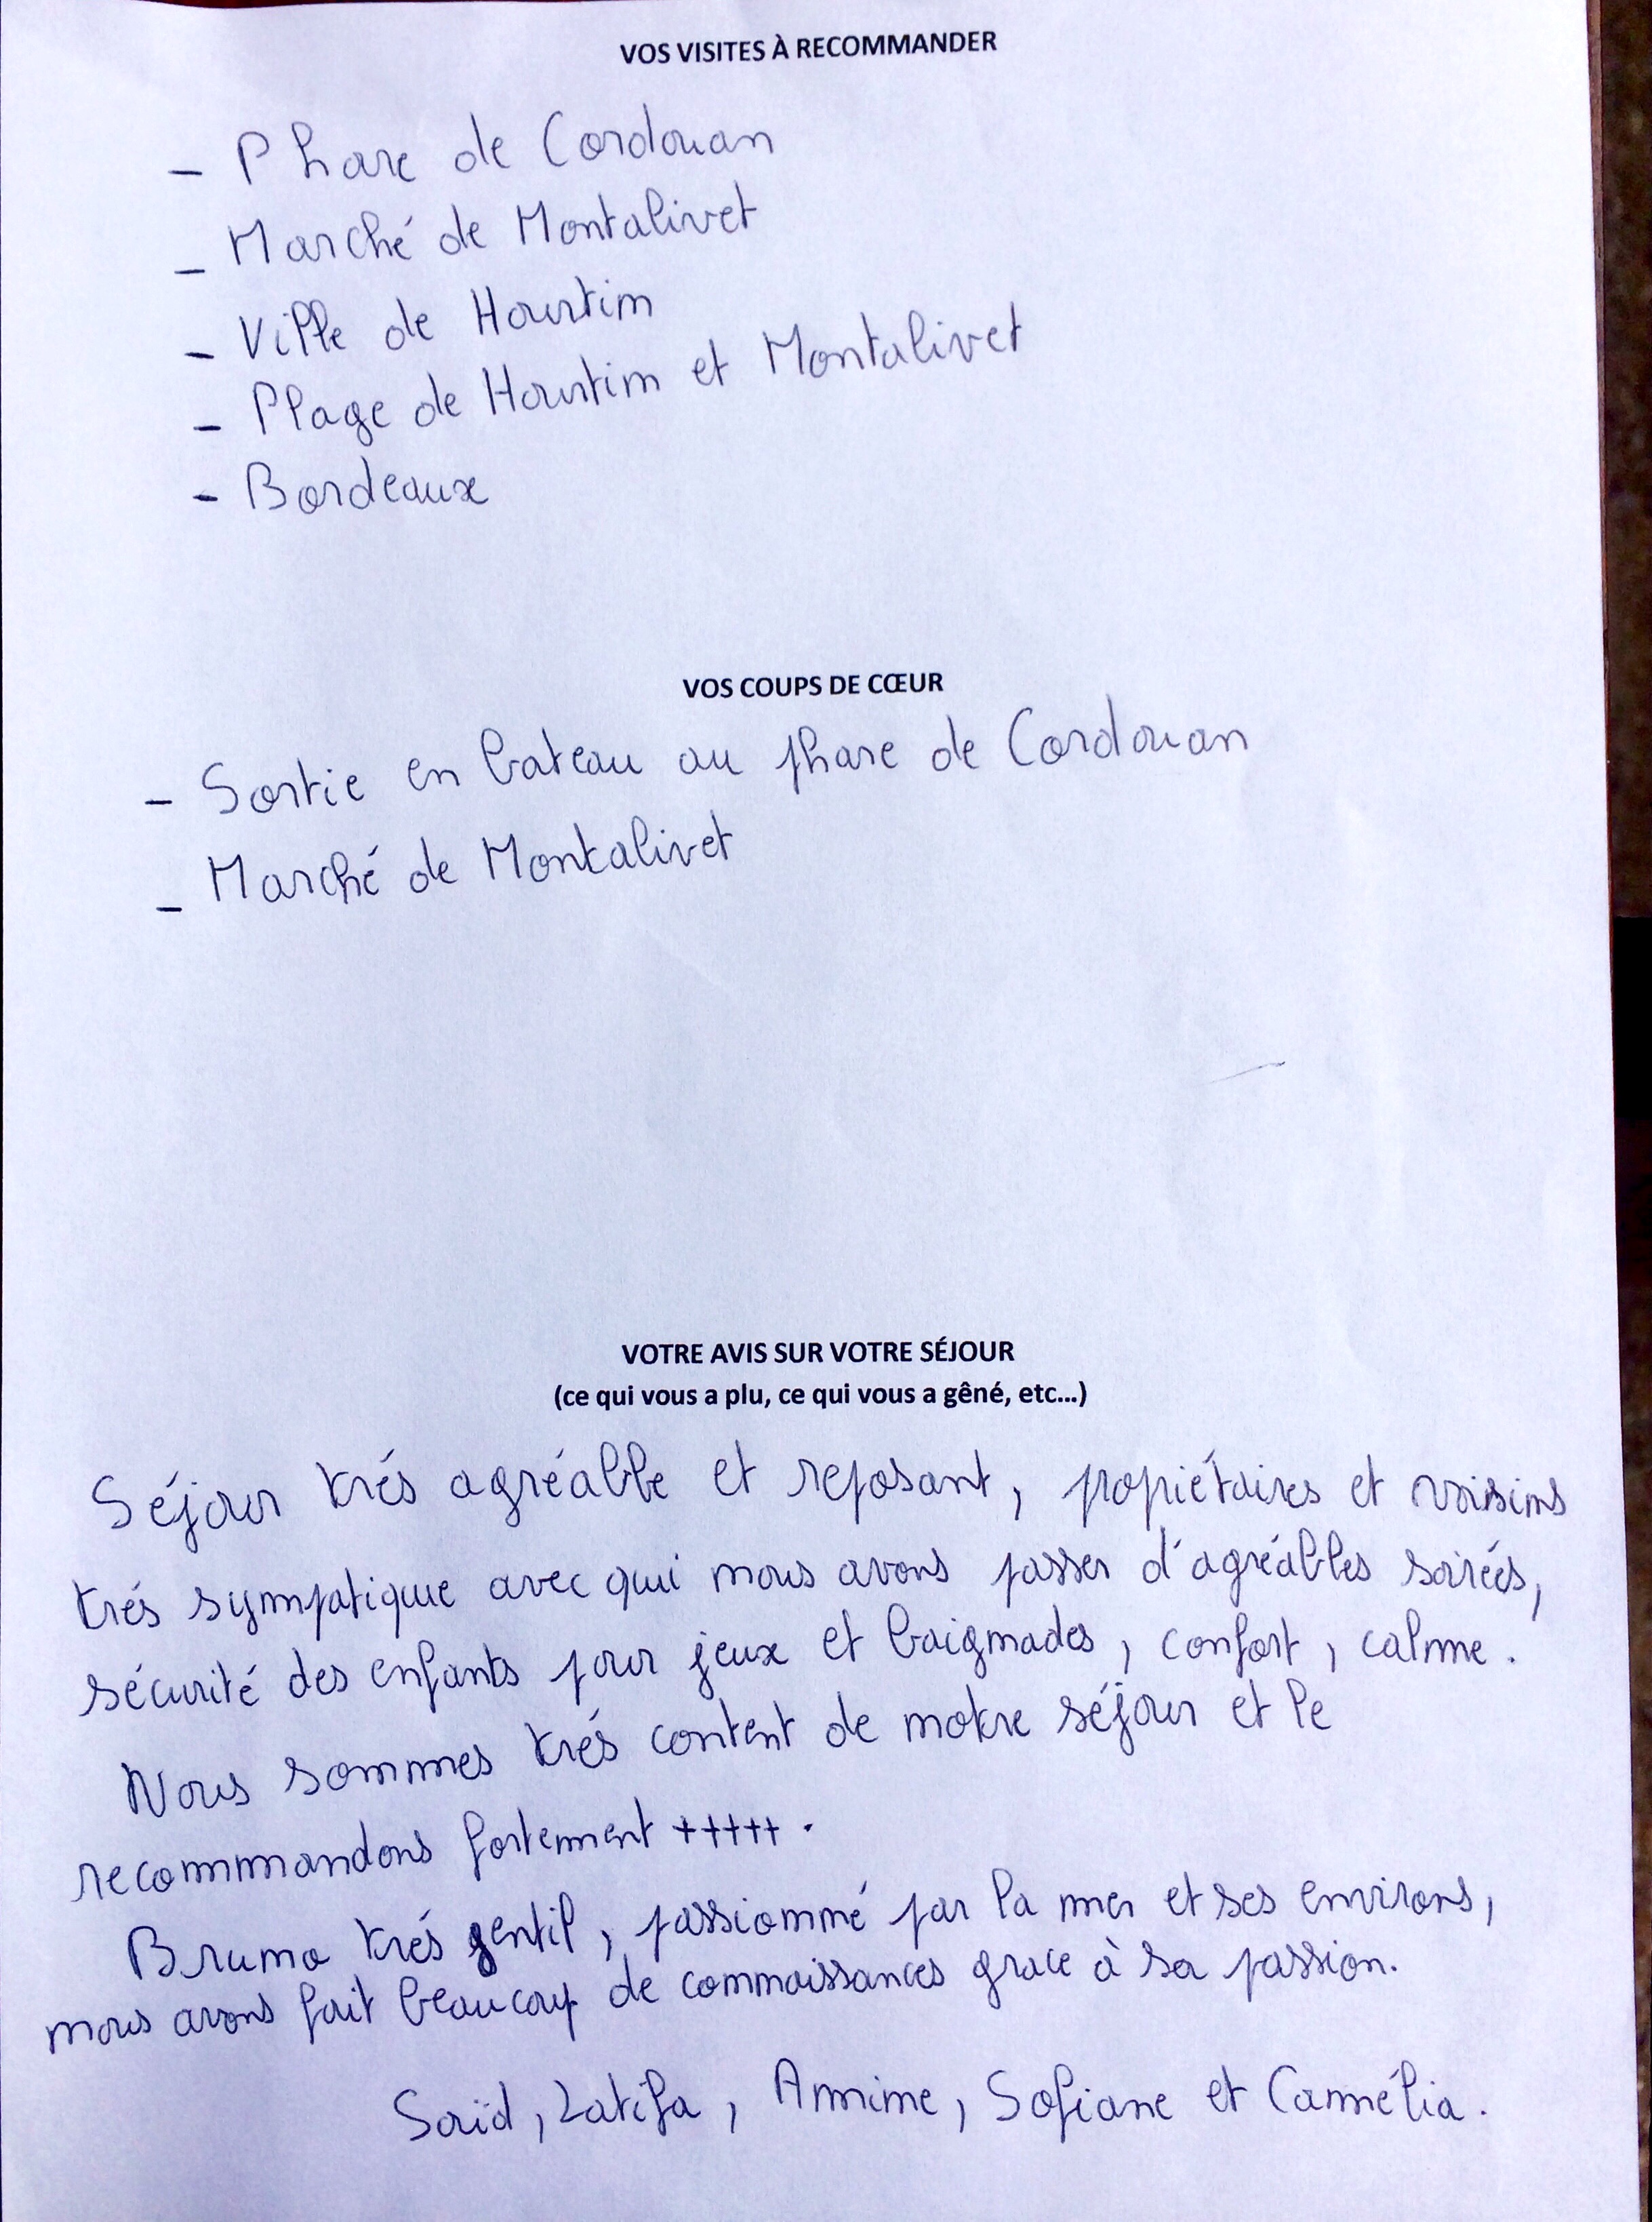 VOS VISITES À RECOMMANDER
- Phare de Cordouan
- Marché de Montalivet
- Ville de Hourtim
- Plage de Hourtim et Montalivet
- Bordeaux
VOS COUPS DE CŒUR
- Sortie en bateau au phare de Cordouan
- Marché de Montalivet
VOTRE AVIS SUR VOTRE SÉJOUR
(ce qui vous a plu, ce qui vous a gêné, etc...)
Séjour trés agréable et reposant, propiétaires et voisins
trés sympatique avec qui nous avons passer d'agréables soirées,
sécurité des enfants pour jeux et baignades, confort, calme.
Nous sommes trés content de notre séjour et le
recommandons fortement +++++.
Bruno trés gentil, passionné par la mer et ses environs,
nous avons fait beaucoup de connaissances grace à sa passion.
Saïd, Latifa, Amine, Sofiane et Camélia.